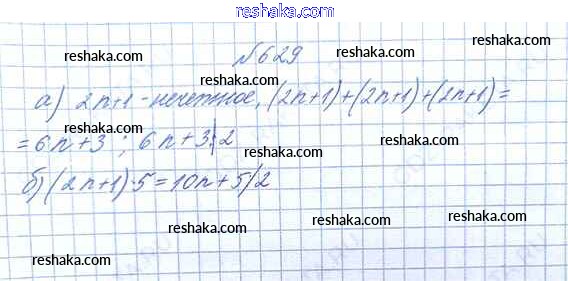 reshaka.com
№629
reshaka.com reshaka.com reshaka.com
а) 2n+1 - нечетное, (2n+1)+(2n+1)+(2n+1)=
reshaka.com
=6n+3 ; 6n+3⋮̸2
reshaka.com reshaka.com
б) (2n+1)·5=10n+5⋮̸2
reshaka.com reshaka.com
reshaka.com reshaka.com
reshaka.com
reshaka.com